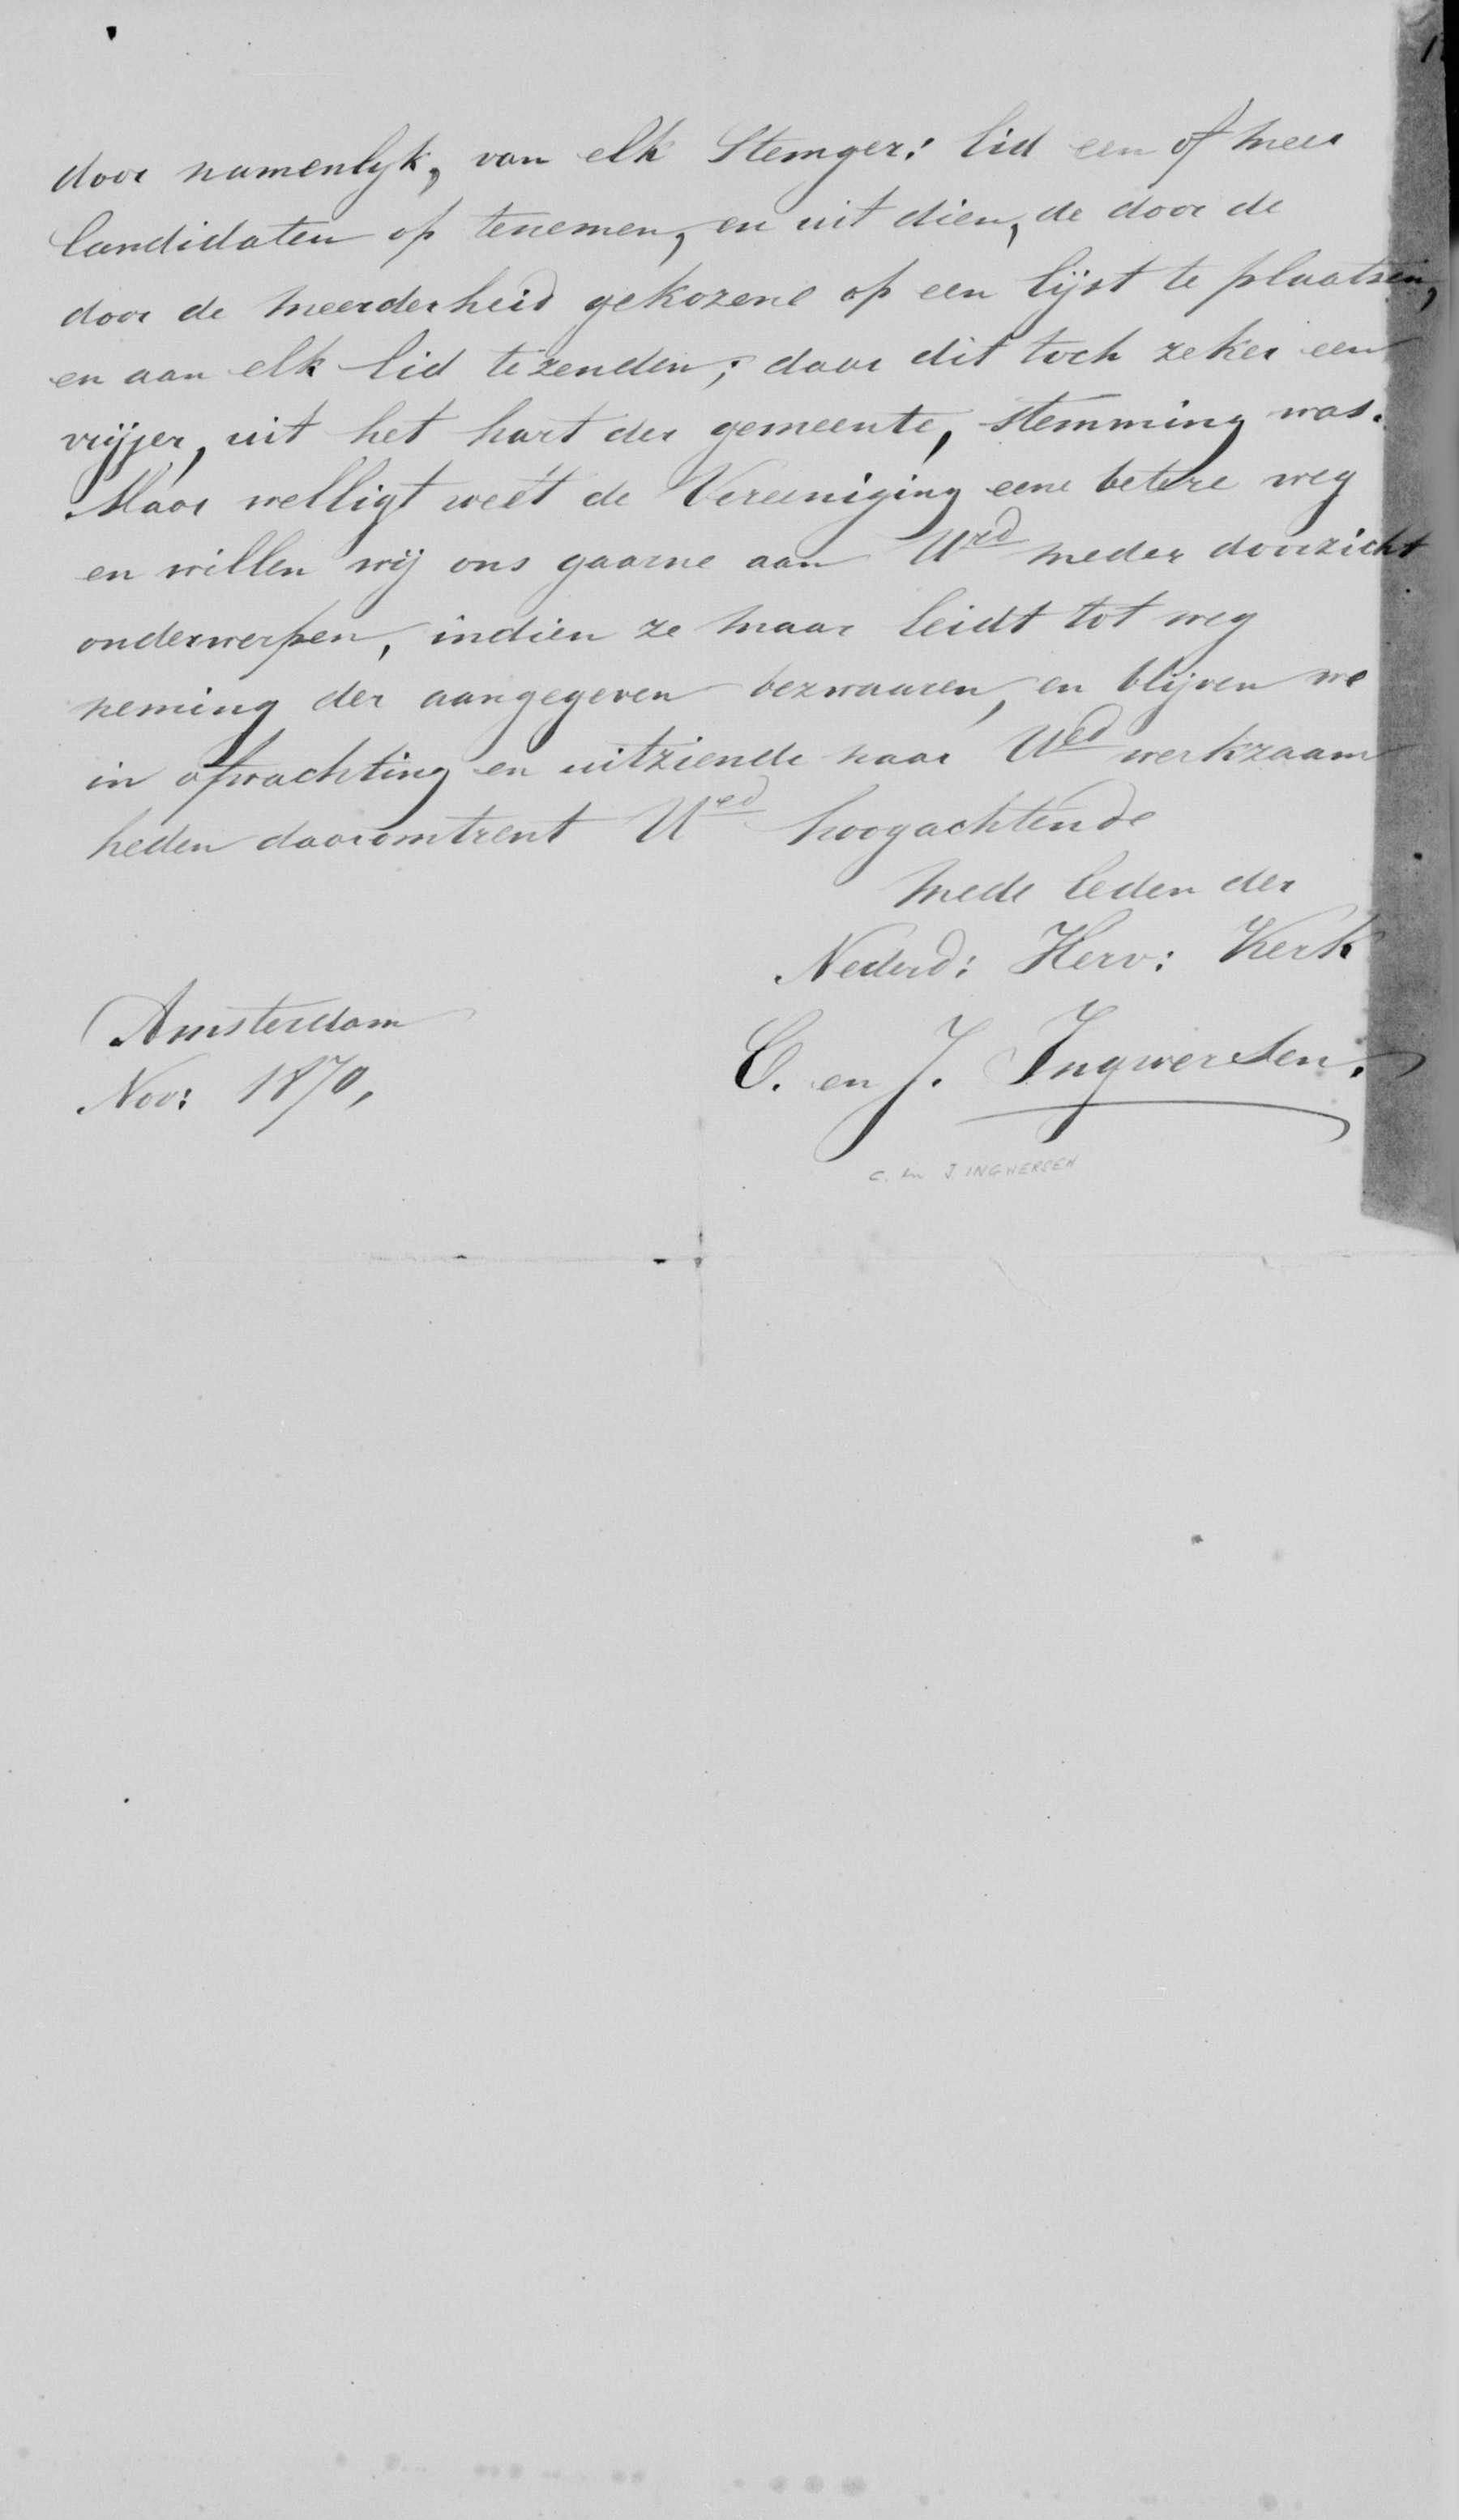 door namenlyk, van elk Stemger: lid een of meer
Candidaten op tenemen, en uit dien, de door de
door de meerderheid gekozene op een lijst te plaatsen,
en aan elk lid tezenden; daar dit toch zeker een
vrijer, uit het hart der gemeente, stemming was.
Maar welligt weet de Vereeniging eene betere weg
en willen wij ons gaarne aan Ued meder doorzicht
onderwerpen, indien ze maar leidt tot weg
neming der aangegeven bezwaaren, en blijven we
in afwachting en uitziende naar Ued werkzaam
heden daaromtrent Ued hoogachtende
mede leden der
Nederd: Herv: Kerk
Amsterdam
Nov: 1870,
C. en J. Ingwersen.
C. en J. INGWERSEN